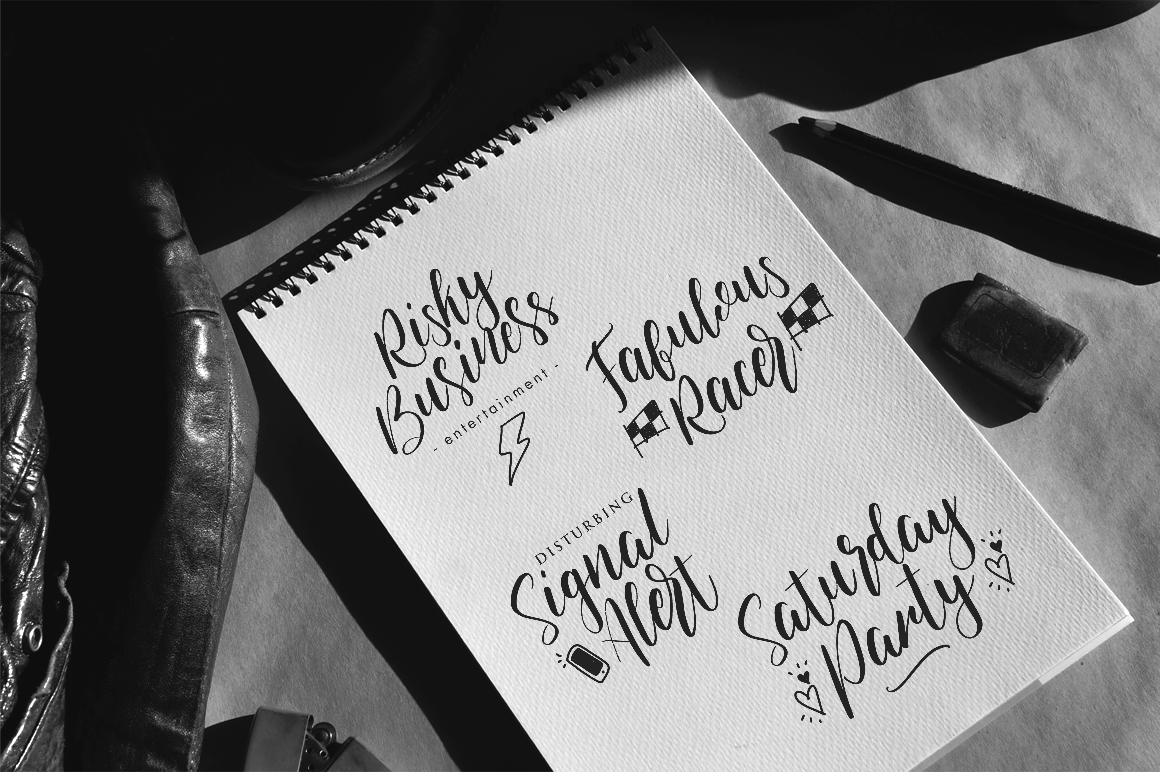 Risky
Business
- entertainment -
Fabulous
Racer
DISTURBING
Signal
Alert
Saturday
Party